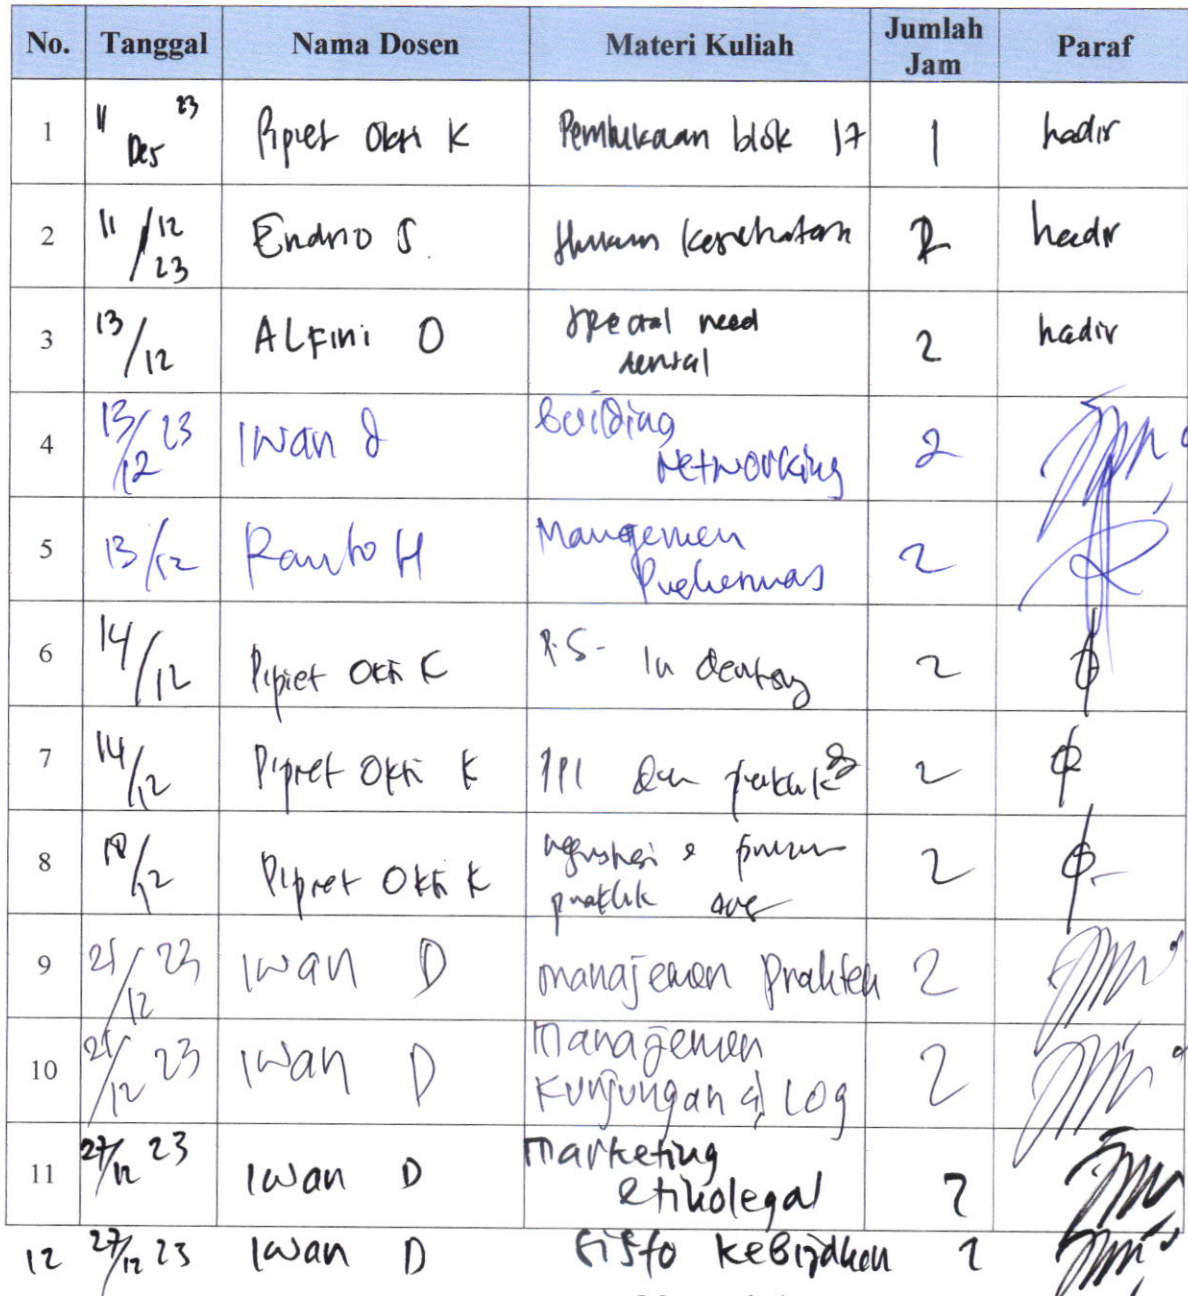 No. Tanggal Nama Dosen Materi Kuliah Jumlah Jam Paraf
1 11 Des 23 Pipiet Okti K Pembukaan blok 17 1 hadir
2 11/12 23 Endro S. Hukum Kesehatan 2 hadir
3 13/12 ALFini O special need dental 2 hadir
4 13/12 23 Iwan D Building Networking 2
5 13/12 Ranto H Manajemen Puskesmas 2
6 14/12 Pipiet Okti K P.S. in dentistry 2
7 14/12 Pipiet Okti K dan praktik 2
8 18/12 Pipiet Okti K praktik 2
9 21/12 23 Iwan D manajemen Praktek 2
10 21/12 23 Iwan D Manajemen Kunjungan & Log 2
11 27/12 23 Iwan D Marketing etikolegal 2
12 27/12 23 Iwan D Kebijakan 2